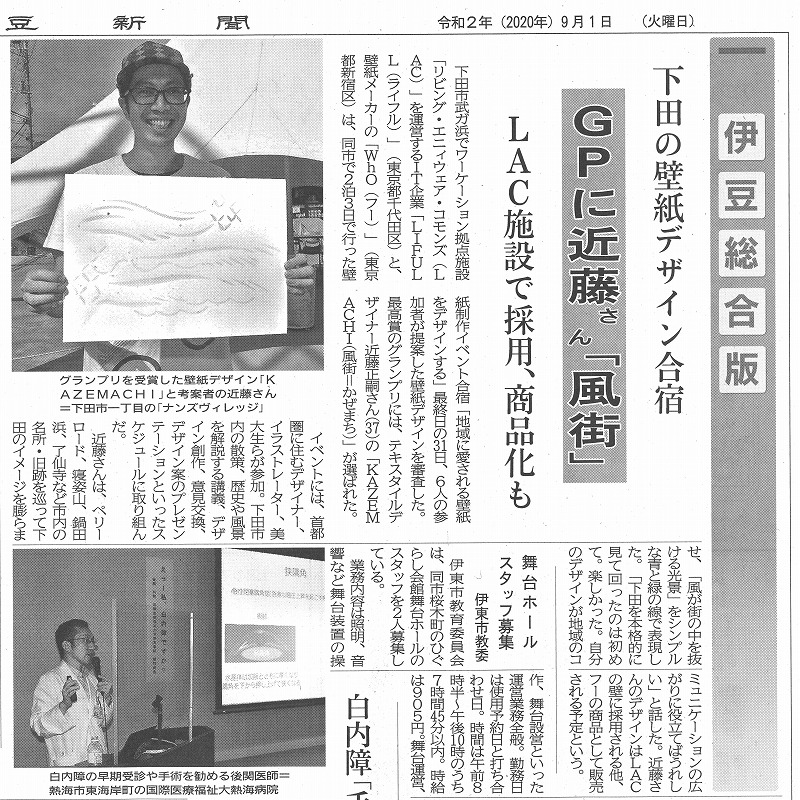 豆 新 聞
令和2年（2020年）9月1日　（火曜日）
伊豆総合版
下田の壁紙デザイン合宿
GPに近藤さん「風街」
LAC施設で採用、商品化も
下田市武ガ浜でワーケーション拠点施設
「リビング・エニィウェア・コモンズ（L
AC）」を運営するIT企業「LIFUL
L（ライフル）」（東京都千代田区）と、
壁紙メーカーの「WhO（フー）」（東京
都新宿区）は、同市で2泊3日で行った壁
紙制作イベント合宿「地域に愛される壁紙
をデザインする」最終日の31日、6人の参
加者が提案した壁紙デザインを審査した。
最高賞のグランプリには、テキスタイルデ
ザイナー近藤正嗣さん(37)の「KAZEM
ACHI（風街＝かぜまち）」が選ばれた。
グランプリを受賞した壁紙デザイン「K
AZEMACHI」と考案者の近藤さん
＝下田市一丁目の「ナンズヴィレッジ」
イベントには、首都
圏に住むデザイナー、
イラストレーター、美
大生らが参加。下田市
内の散策、歴史や風景
を解説する講義、デザ
イン創作、意見交換、
デザイン案のプレゼン
テーションといったス
ケジュールに取り組ん
だ。
近藤さんは、ペリー
ロード、寝姿山、鍋田
浜、了仙寺など市内の
名所・旧跡を巡って下
田のイメージを膨らま
せ、「風が街の中を抜
ける光景」をシンプル
な青と緑の線で表現し
た。「下田を本格的に
見て回ったのは初め
て。楽しかった。自分
のデザインが地域のコ
ミュニケーションの広
がりに役立てばうれし
い」と話した。近藤さ
んのデザインはLAC
の壁に採用される他、
フーの商品として販売
される予定という。
舞台ホール
スタッフ募集
伊東市教委
伊東市教育委員会
は、同市桜木町のひぐ
らし会館舞台ホールの
スタッフを2人募集し
ている。
業務内容は照明、音
響など舞台装置の操
作、舞台設営といった
運営業務全般。勤務日
は使用予約日と打ち合
わせ日。時間は午前8
時半～午後10時のうち
7時間45分以内。時給
は905円。舞台運営、
白内障「手
狭隅角
白内障の早期受診や手術を勧める後関医師＝
熱海市東海岸町の国際医療福祉大熱海病院